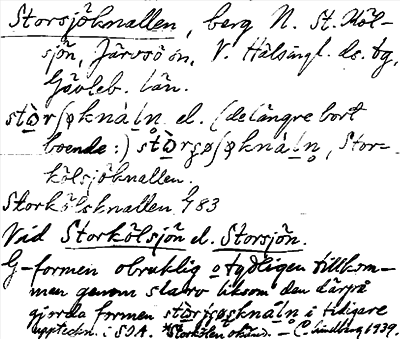 Storsjöknallen, berg N. St. Köl-
sjön, Järvsö sn, V. Hälsingl. ds. tg,
Gävleb. län.
el. (de längre bort
boende:) , Stor-
kölsjöknallen.
Storkölsknallen 483
Vid Storkölsjön el. Storsjön.
G-formen obruklig o tydligen tillkom-
men genom slarv liksom den därpå
gjorda formen i tidigare
uppteckn. i SOA. *Storkölen okänd. — C. Lindberg 1939.